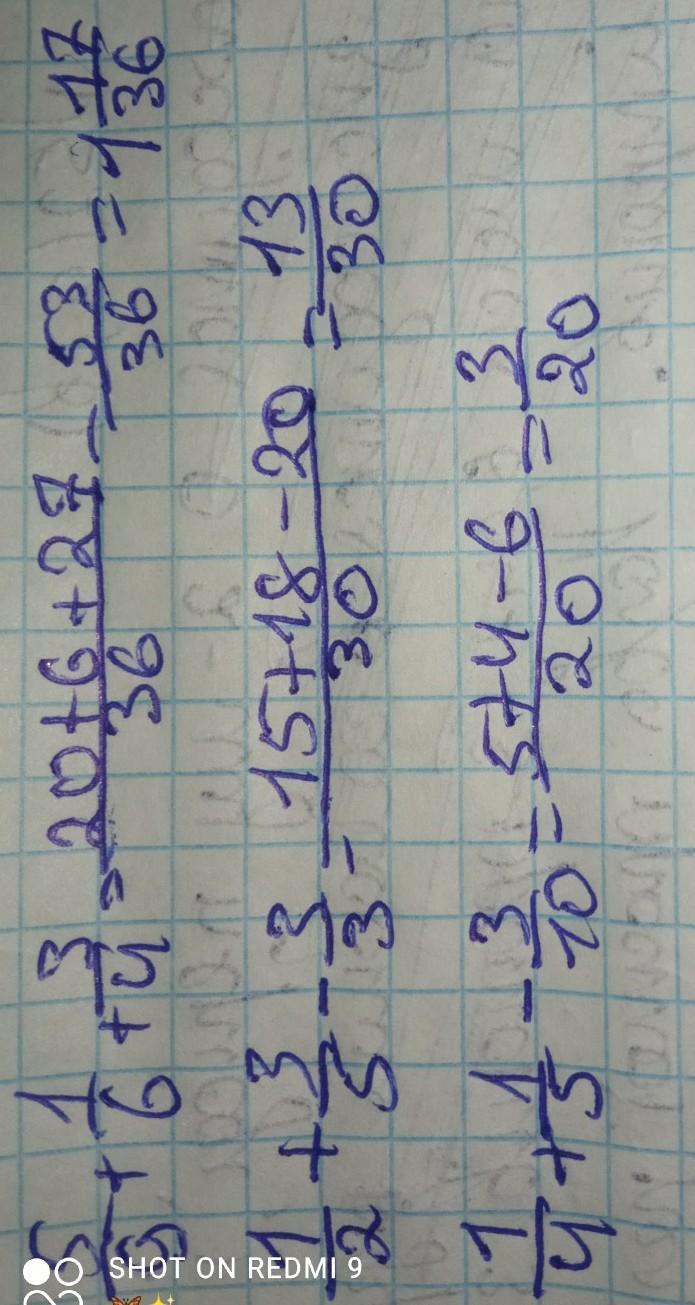 5/9 + 1/6 + 3/4 = (20+6+27)/36 - 53/36 = 1 17/36
1/2 + 3/5 - 3/3 - (15+18-20)/30 = 13/30
1/4 + 1/5 - 3/10 = (5+4-6)/20 = 3/20
SHOT ON REDMI 9